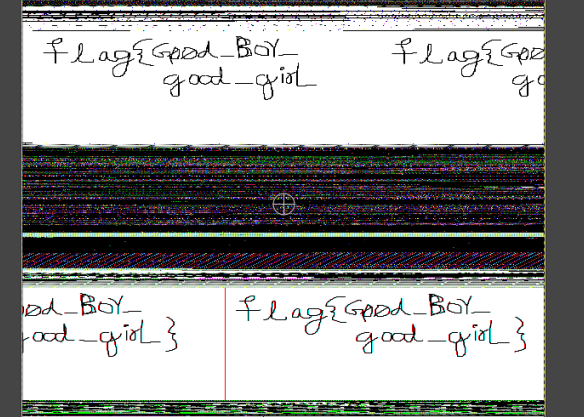 flag{Good_BOY_
good_girl_
flag{Goo
go
od_BOY_
ood_girl_}
flag{Good_BOY_
good_girl_}